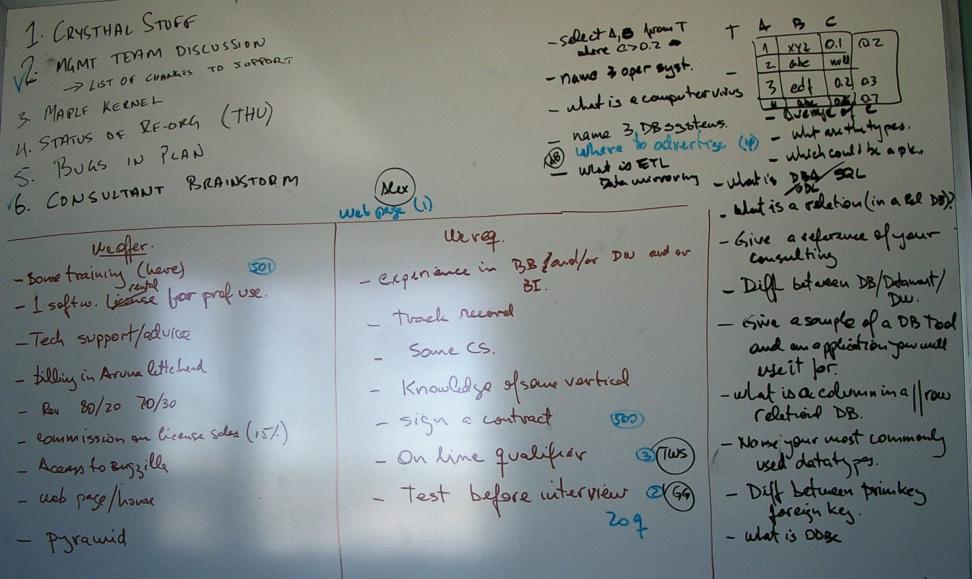 1. CRYSTHAL STUFF
2. MGMT TEAM DISCUSSION
→ LIST OF CHANGES TO SUPPORT
3. MAPLE KERNEL
4. STATUS OF RE-ORG (THU)
5. BUGS IN PLAN
6. CONSULTANT BRAINSTORM
Alex
Web page (1)
We offer.
- Some training (here)
501
rental
- 1 softw. License for prof use.
- Tech support/advice
- billing in Aruna letterhead
- Rev 80/20 70/30
- commission on license sales (15%)
- Access to Bugzilla
- web page/house
- pyramid
We req.
- experience in DB and/or DW and or
BI.
- track record
- Some CS.
- Knowledge of some vertical
- sign a contract
500
- On line qualifier
3 TWS
- Test before interview
2 GG
20 q
- select A, B from T
where C>0.2
- name 3 oper syst.
- what is a computer virus
- name 3 DB systems.
Where to advertise (4)
- what is ETL
Data mirroring
T A B C
1 xyz 0.1 0.2
2 abc null
3 edf 0.2 0.3
4 abc 0.7
- Average of C
- what are the types.
- which could be a pk.
- what is DBA/SQL
/ODBC
- What is a relation (in a Rel DB)?
- Give a reference of your
consulting
- Diff between DB/Datamart/
DW.
- Give a sample of a DB Tool
and an application you will
use it for.
- what is a column in a || row
relational DB.
- Name your most commonly
used datatypes.
- Diff between prim key
foreign key.
- what is ODBC